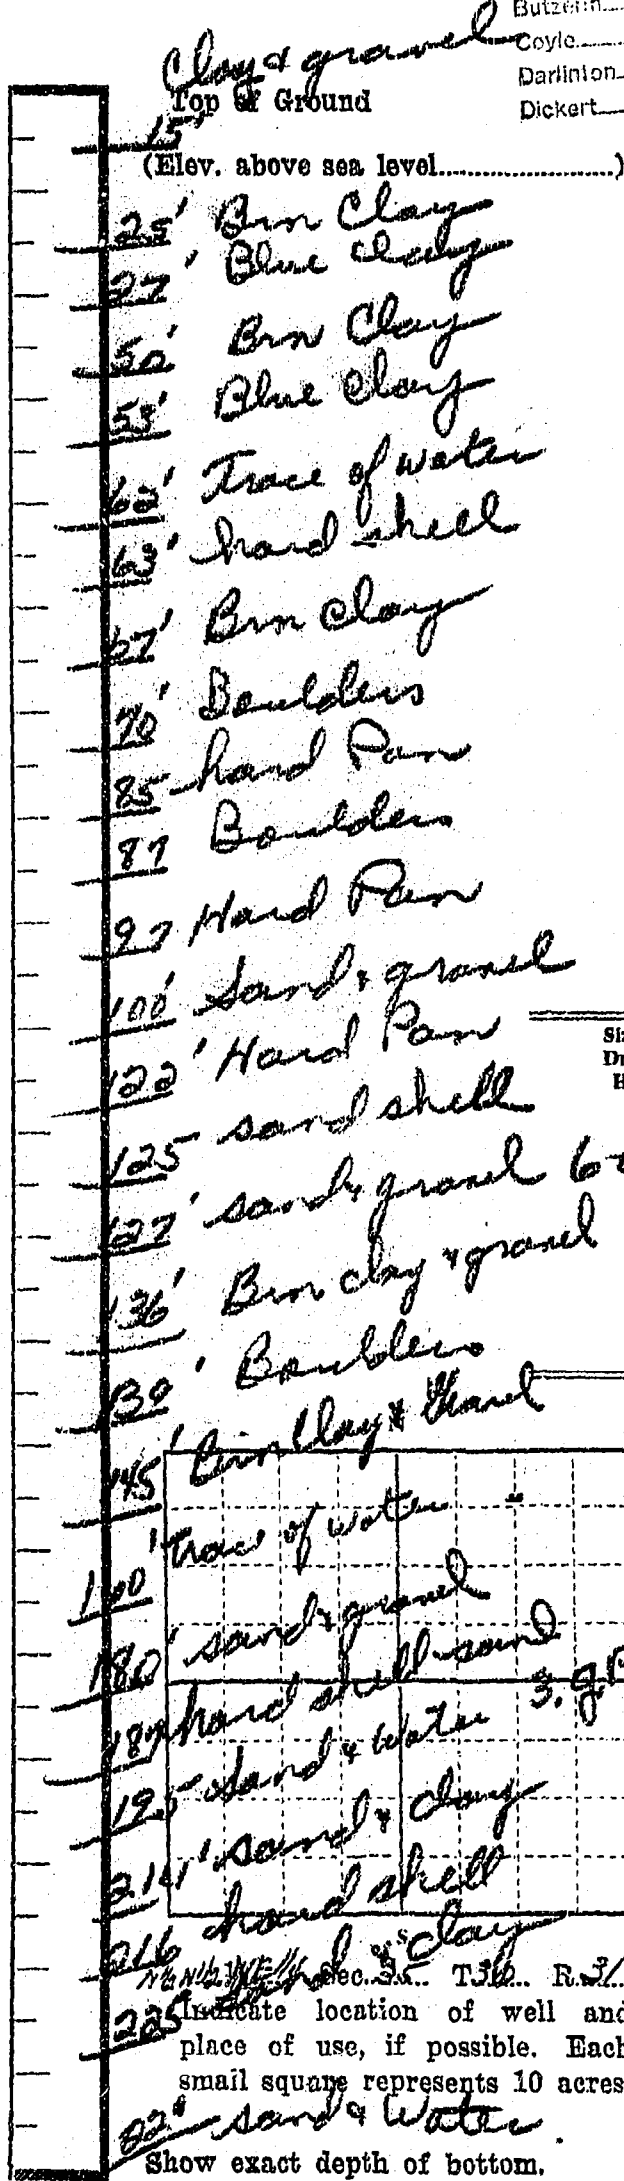 Butzerin
Coyle
Clay & gravel
Darlinton
Top of Ground
Dickert
15'
(Elev. above sea level......................)
25' Brn Clay
27' Blue Clay
50' Brn Clay
53' Blue Clay
62' Trace of water
63' hard shell
67' Brn Clay
70' Boulders
85 hard Pan
87 Boulders
97 Hard Pan
100' Sand & gravel
122' Hard Pan
125 sand shell
127' sand & gravel
136' Brn clay & gravel
139' Boulders
145' Brn Clay & Gravel
trace of water
180' sand & gravel
187 hard shell sand
195 sand & water 3.
sand & clay
216 hard shell
225 sand & clay
Sec. 35 T. 36 R. 31
Indicate location of well and
place of use, if possible. Each
small square represents 10 acres
sand & Water
Show exact depth of bottom.